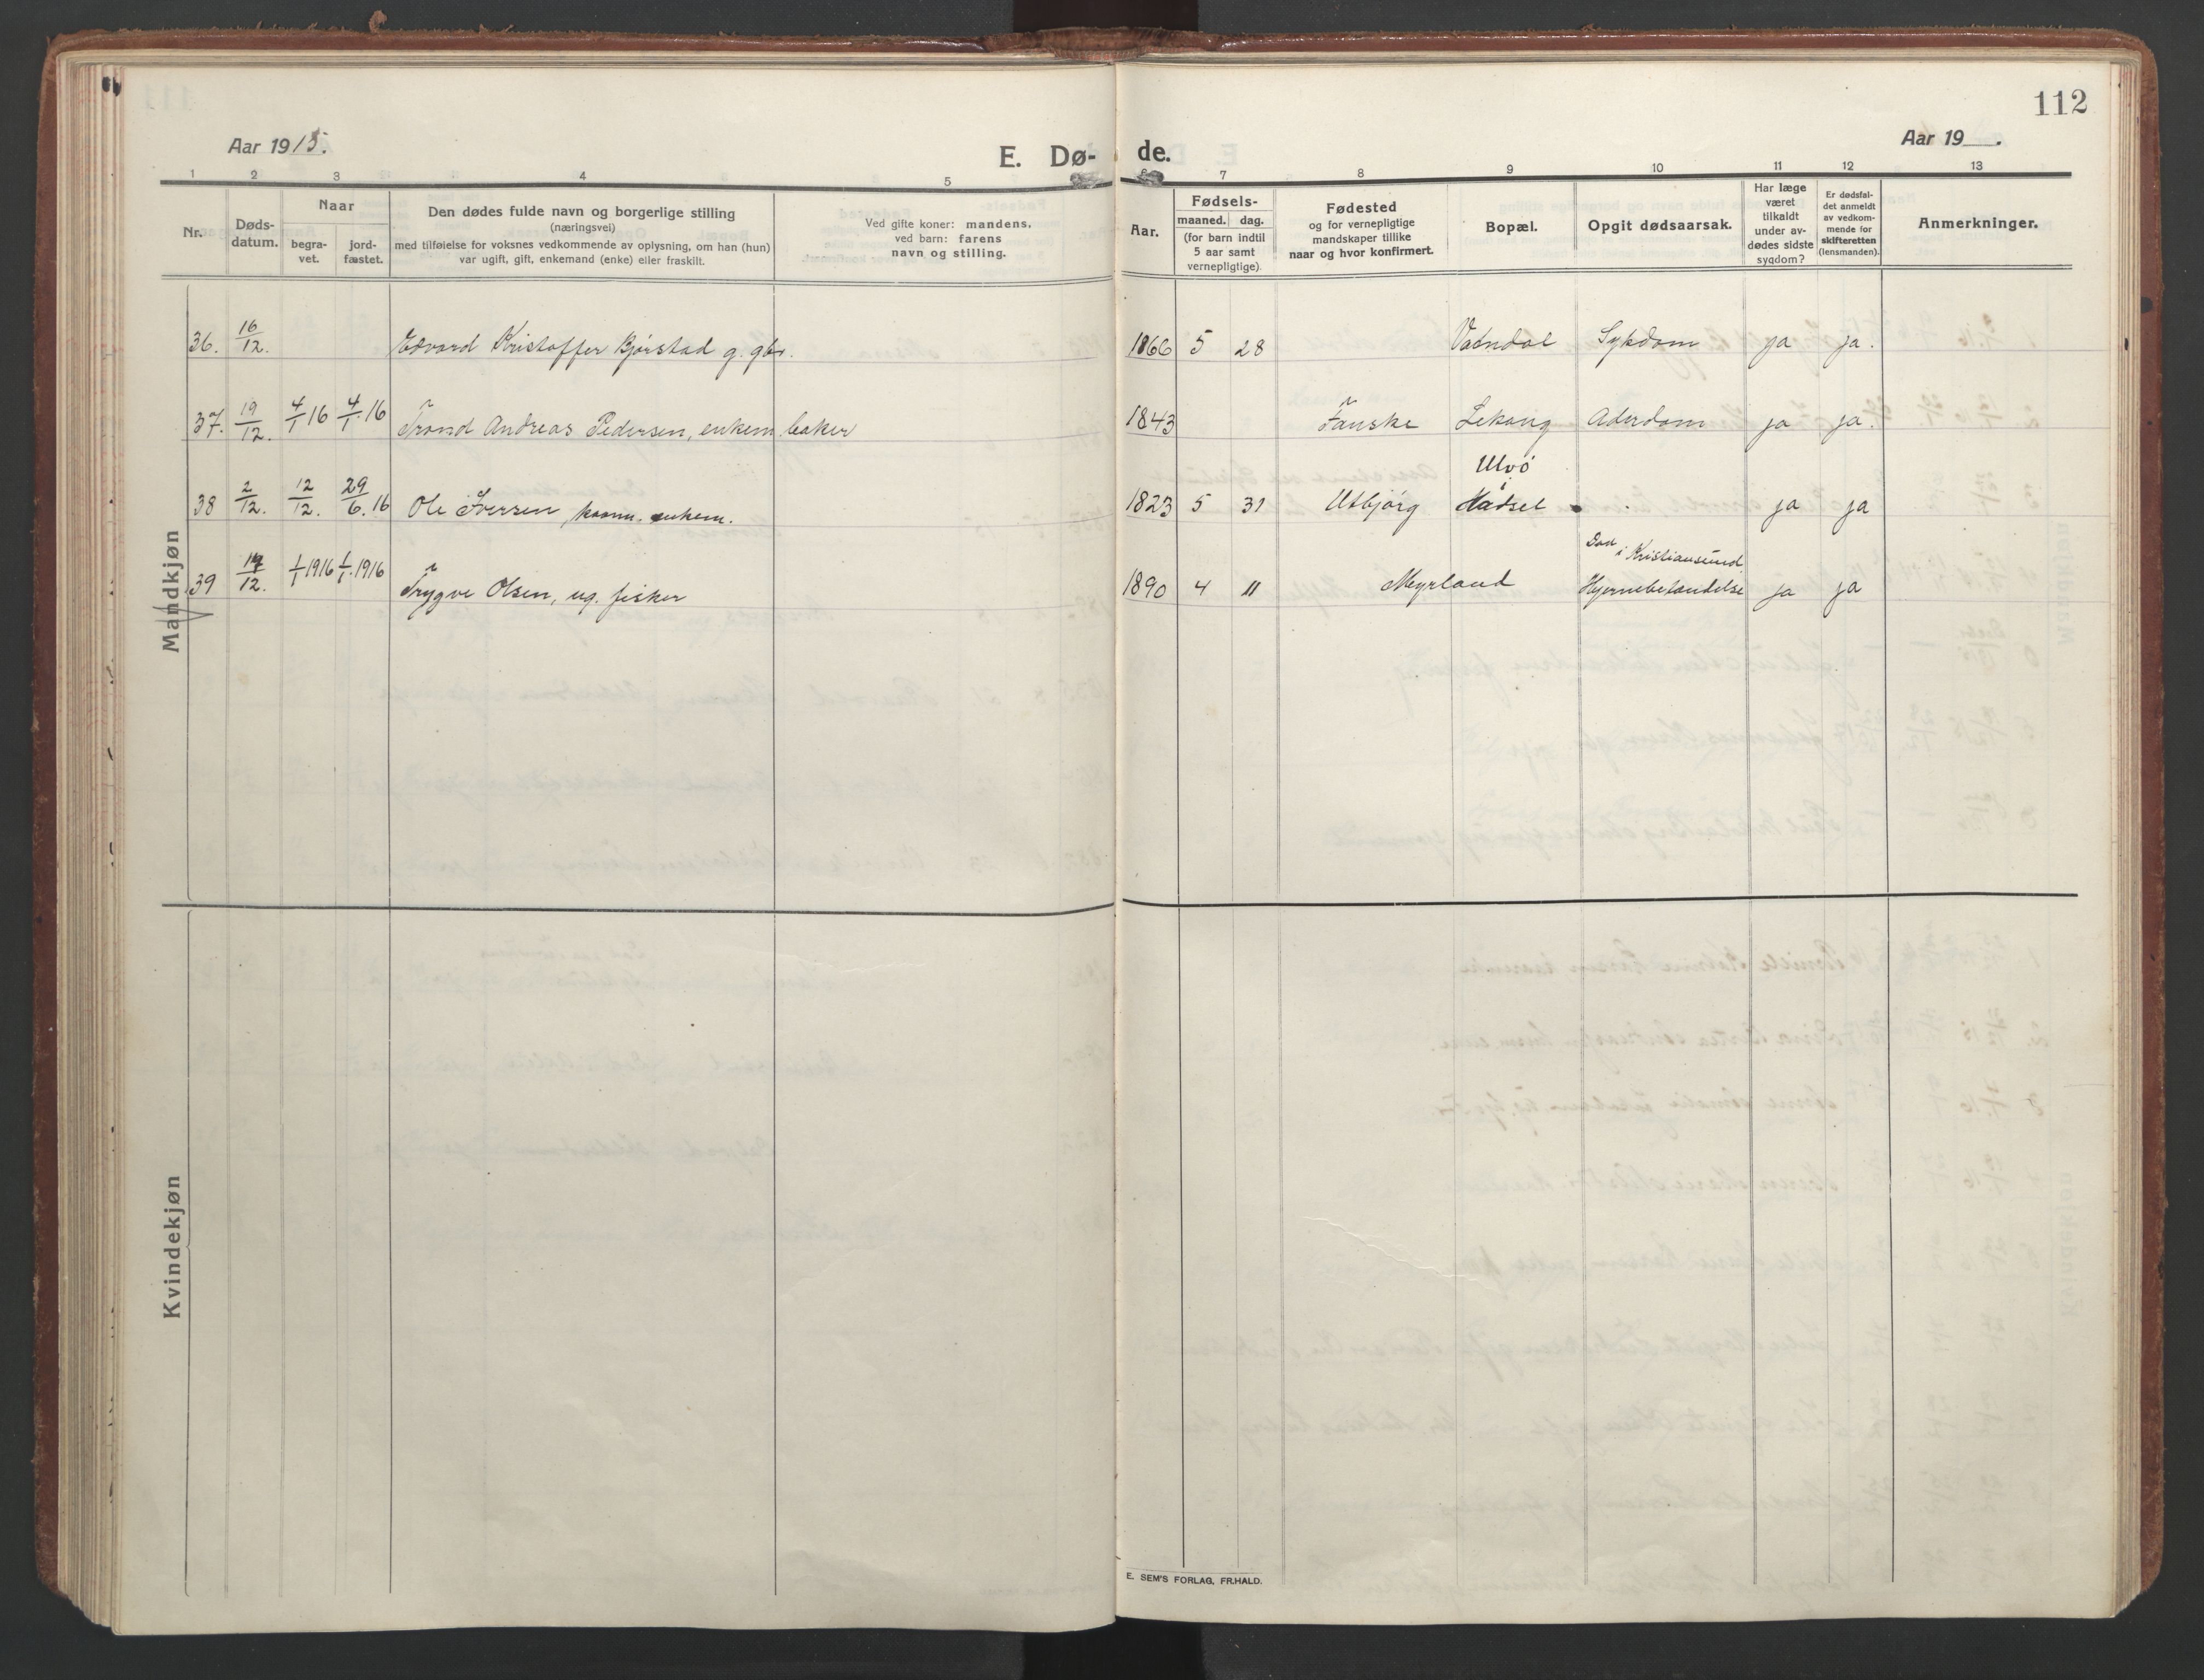 112
Aar 1915.
E. Dø- de.
Aar 19 .
1 2 3 4 5 7 8 9 10 11 12 13
Nr.
Døds-
datum.
Naar
begra-
vet.
jord-
fæstet.
Den dødes fulde navn og borgerlige stilling
(næringsvei)
med tilføielse for voksnes vedkommende av oplysning, om han (hun)
var ugift, gift, enkemand (enke) eller fraskilt.
Ved gifte koner: mandens,
ved barn: farens
navn og stilling.
Aar.
Fødsels-
maaned. dag.
(for barn indtil
5 aar samt
vernepligtige)
Fødested
og for vernepligtige
mandskaper tillike
naar og hvor konfirmert.
Bopæl.
Opgit dødsaarsak.
Har læge
været
tilkaldt
under av-
dødes sidste
sygdom?
Er dødsfal-
det anmeldt
av vedkom-
mende for
skifteretten
(lensmanden).
Anmerkninger.
Mandkjøn
36. 16/12. Edvard Kristoffer Bjørstad g. gbr. 1866 5 28 Sykdom ja ja.
37. 19/12. 4/1 16 4/1. 16 Trond Andreas Pedersen, enkem. baker 1843 Fauske Lekang Alderdom ja ja.
Ulvö
38 2/12. 12/12. 29/6. 16 Ole Iversen, enkem. 1823 5 31 Utbjörg Hadsel ja ja
Död i Kristiansund.
39 14/12. 1/1 1916 1/1. 1916 Trygve Olsen, ug. fisker 1890 4 11 Myrland Hjernebetændelse ja ja
Kvindekjøn
E. SEM'S FORLAG, FR.HALD.